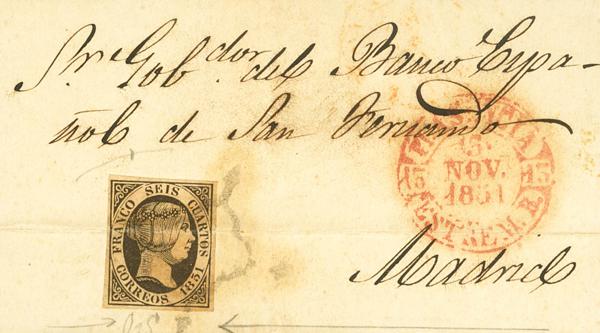 Sr. Gobdor. del Banco Espa-
ñol de San Fernando
Madrid
FRANCO SEIS CUARTOS
CORREOS 1851
15
NOV.
1851
15 15
ESTREM.